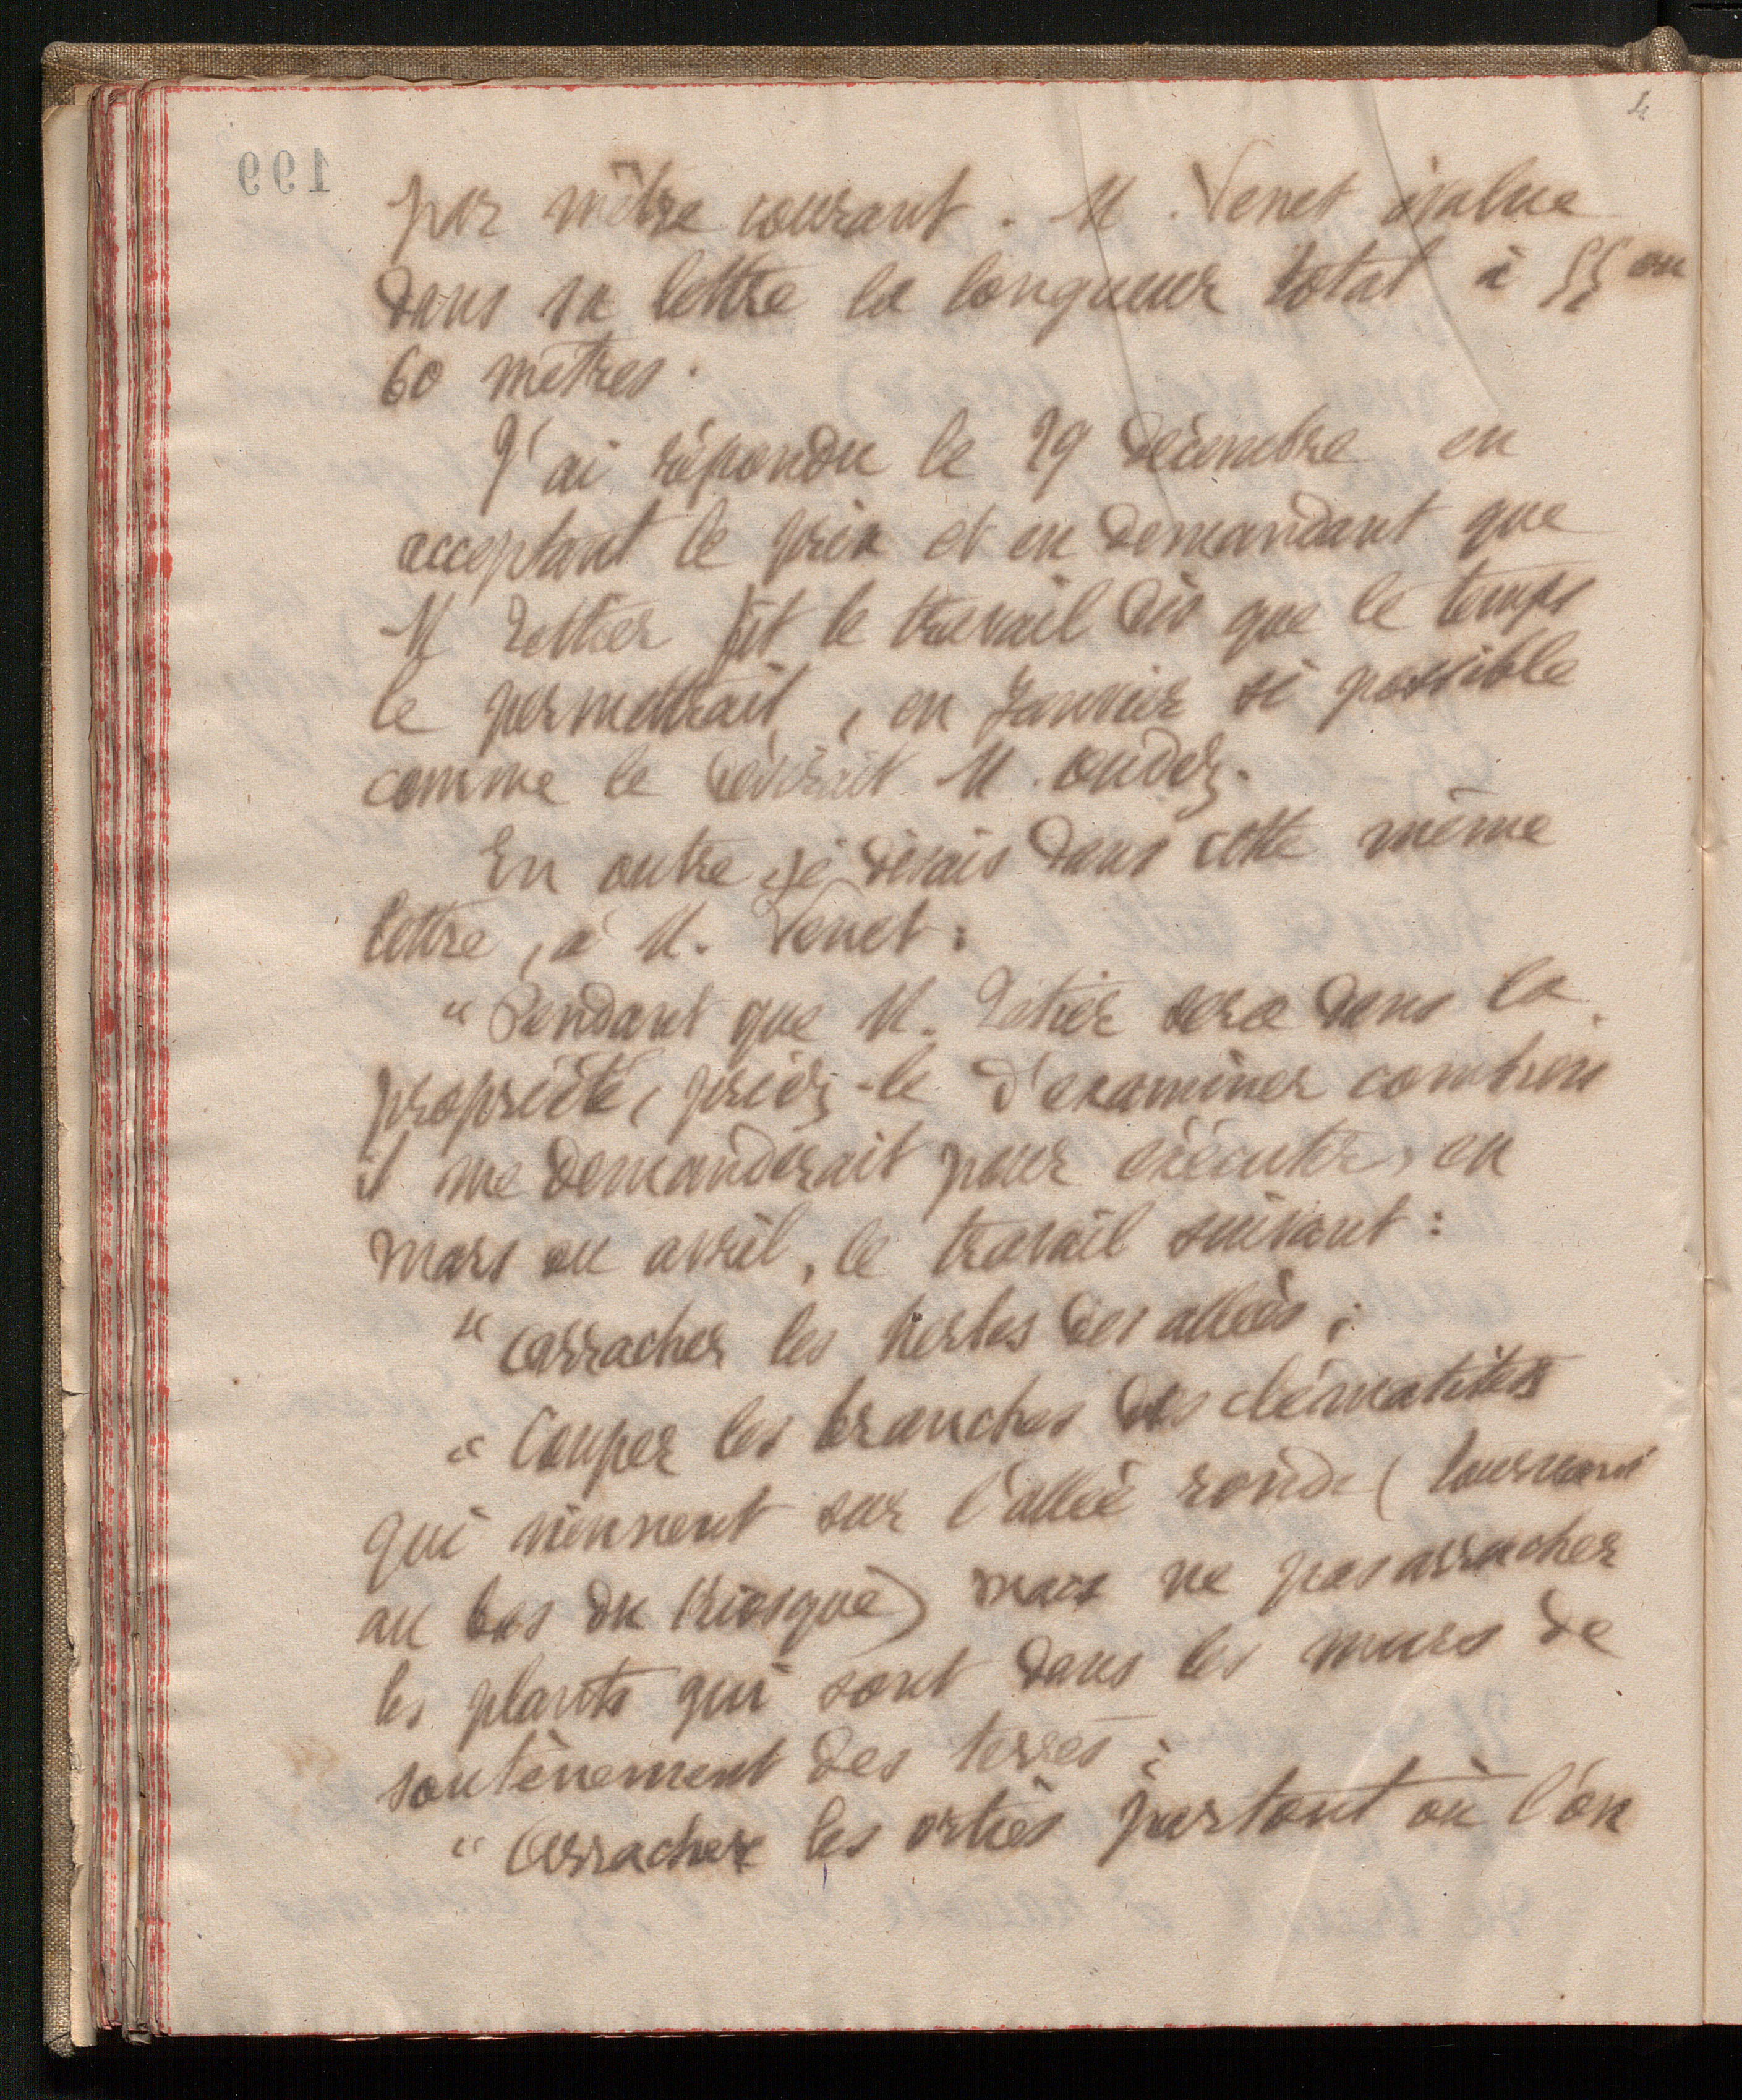 4
199
par mètre courant. M. Venet évalue
dans sa lettre la longueur total à 55 ou
60 mètres.
J'ai répondu le 29 décembre en
acceptant le prix et en demandant que
M fît le travail dès que le temps
le permettrait, en Janvier si possible
comme le désirait M. Oudez.
En outre, je disais dans cette même
lettre, à M. Venet :
" Pendant que M. sera dans la
propriété, priez-le d'examiner combien
il me demanderait pour exécuter, en
mars ou avril, le travail suivant :
" arracher les herbes des allées ;
" Couper les branches des clématites
qui viennent sur l'allée ronde (tournant
au bas du Kiosque) mais ne pas arracher
les plants qui sont dans les murs de
soutènement des terres ;
" arracher les orties partout où l'on